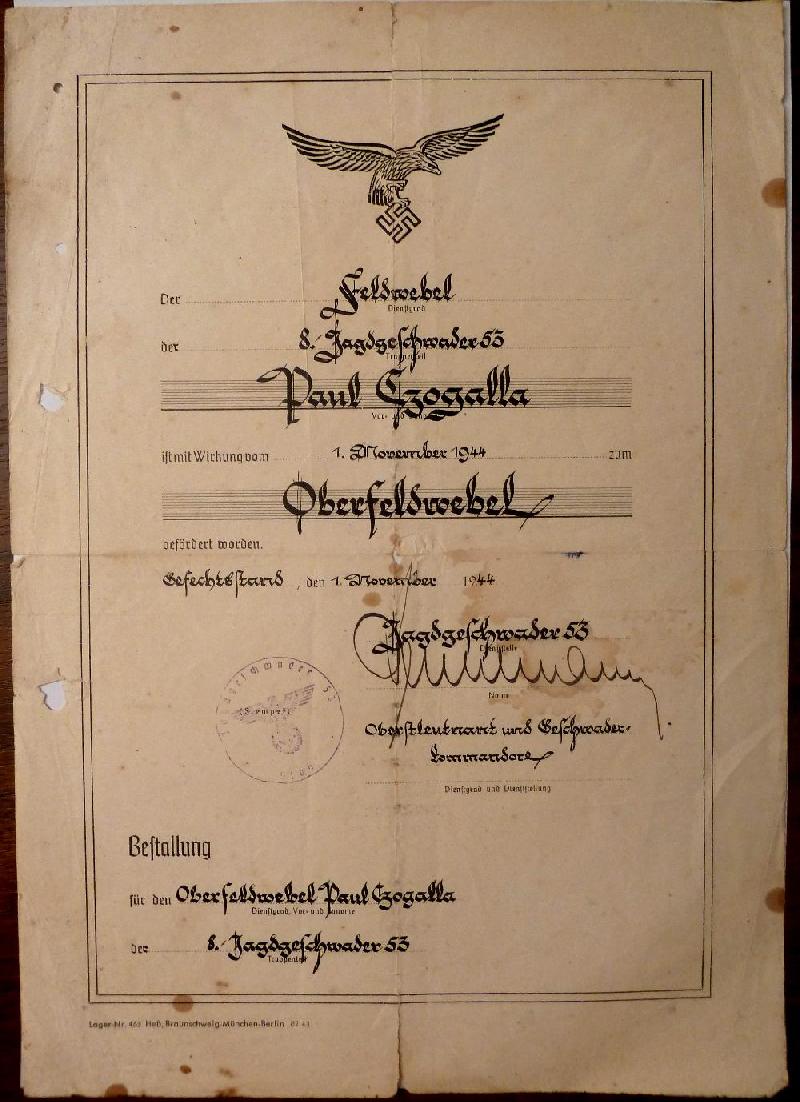 Der Feldwebel
Dienstgrad
der 8. Jagdgeschwader 53
Truppenteil
Paul Czogalla
Vor- und
ist mit Wirkung vom 1. November 1944 zum
Oberfeldwebel
befördert worden.
Gefechtsstand, den 1. November 1944
Jagdgeschwader 53
Dienststelle
Name
Oberstleutnant und Geschwader-
kommandore
Dienstgrad und Dienststellung
Jagdgeschwader 53
Bestallung
für den Oberfeldwebel Paul Czogalla
Dienstgrad, Vor- und Zuname
der 8. Jagdgeschwader 53
Truppenteil
Lager-Nr. 463 Heß, Braunschweig-München-Berlin